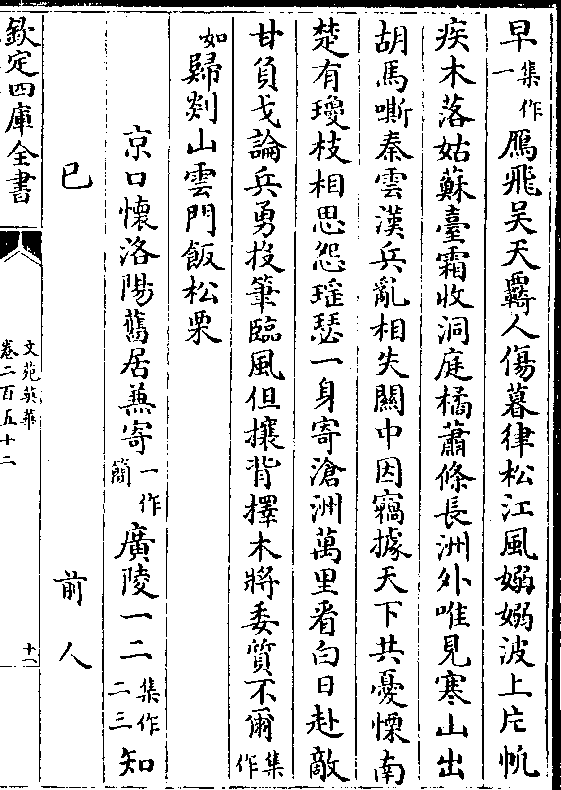 早集作一鴈飛吳天覊人傷暮律松江風嫋嫋波上片帆
疾木落姑蘇臺霜收洞庭橘蕭條長洲外唯見寒山出
胡馬嘶秦雲漢兵亂相失關中因竊據天下共憂慄南
楚有瓊枝相思怨瑶瑟一身寄滄洲萬里看白日赴敵
甘負戈論兵勇投筆臨風但攘背擇木將委質不爾集作
如歸剡山雲門飯松栗
京口懷洛陽舊居兼寄一作簡廣陵一二集作二三知
已 前人
欽定四庫全書
文苑英華
卷二百五十二
十一